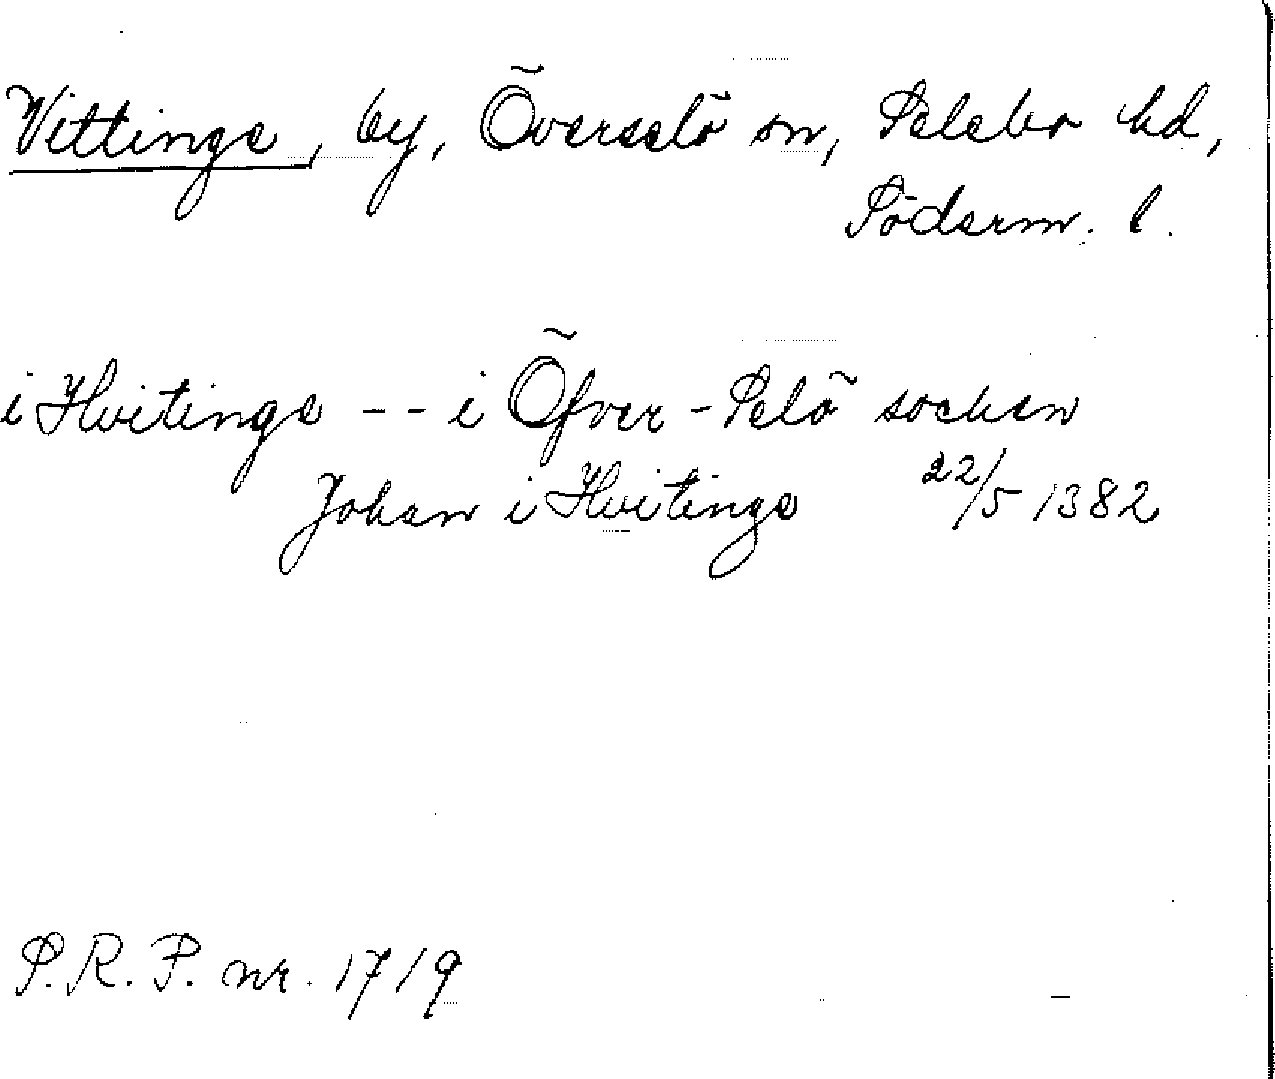 Vittinge, by, Överselö sn, Selebo hd,
Söderm. l.
i Hvitinge -- i Öfver-Selö socken
Johan i Hvitinge 22/5 1382
S.R.P. nr. 1719